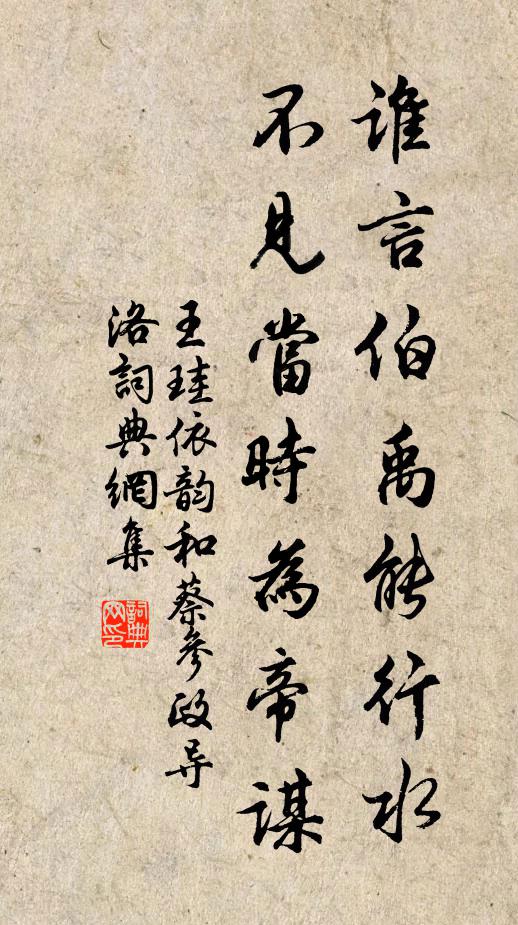 誰言伯禹能行水
不見當時為帝謀
王珪依韵和蔡參政导
洛詞典網集
詞典网印